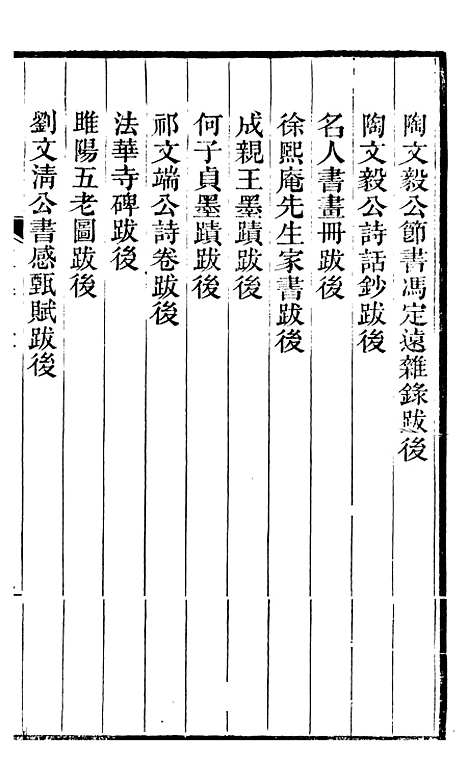 陶文毅公節書馮定遠雜錄跋後
陶文毅公詩話鈔跋後
名人書畫冊跋後
徐熙庵先生家書跋後
成親王墨蹟跋後
何子貞墨蹟跋後
祁文端公詩卷跋後
法華寺碑跋後
睢陽五老圖跋後
劉文清公書感甄賦跋後